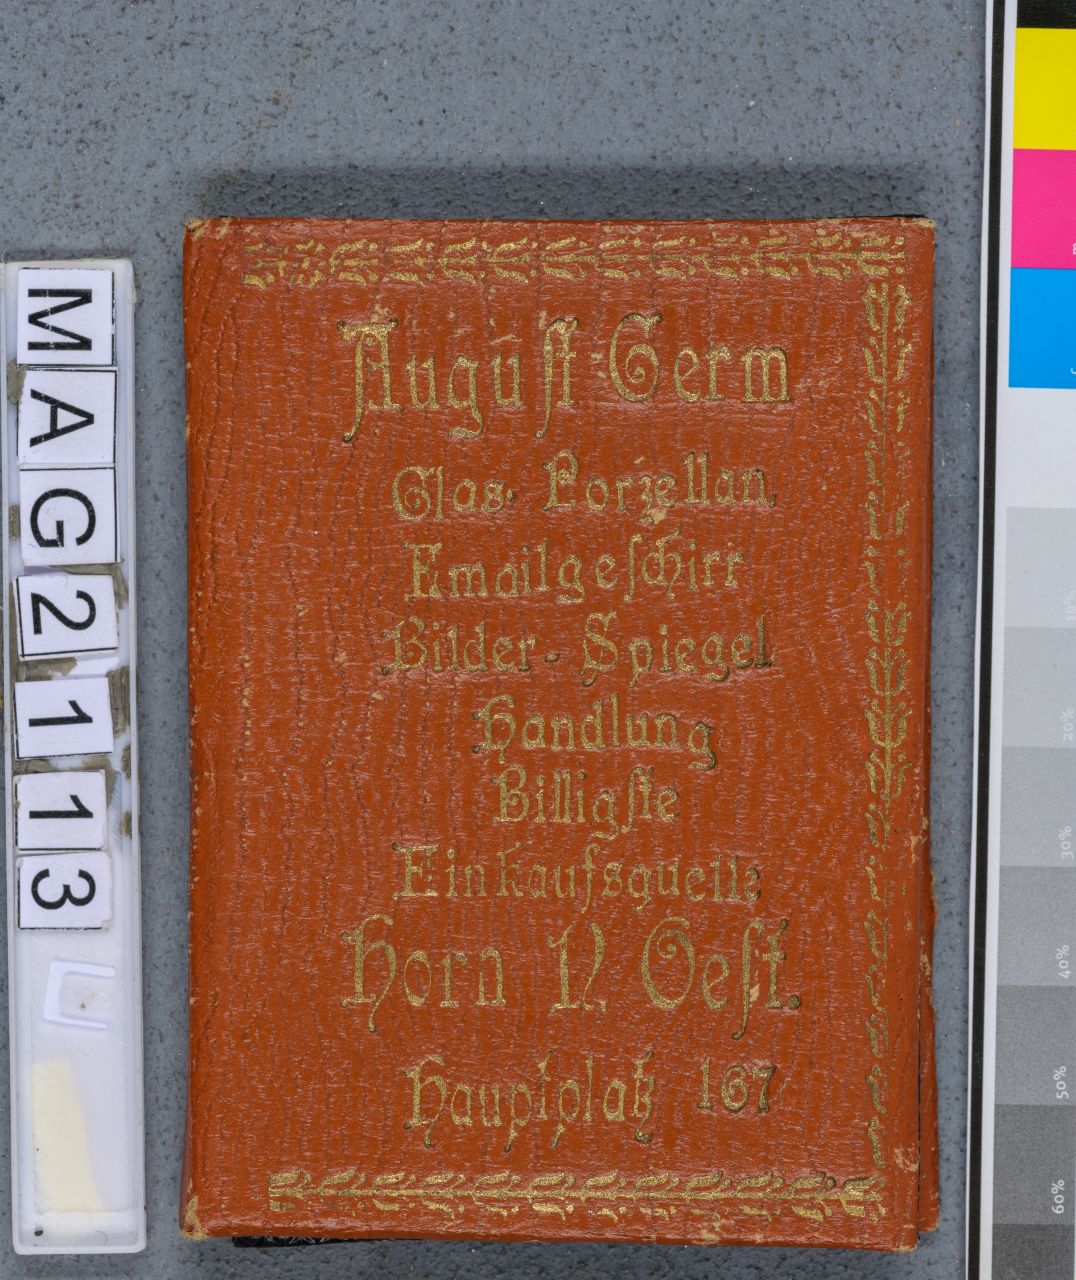 MAG2113
August Germ
Glas- Porzellan,
Emailgeschirr
Bilder- Spiegel
Handlung
Billigste
Einkaufsquelle
Horn N. Oest.
Hauptplatz 167
m
c
10%
20%
30%
40%
50%
60%